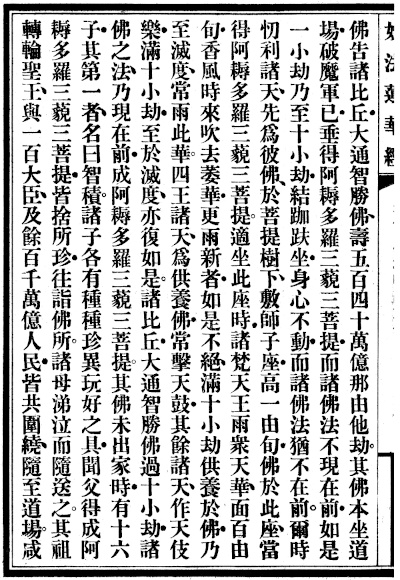 妙法蓮華經
佛告諸比丘大通智勝佛壽五百四十萬億那由他劫。其佛本坐道
場破魔軍已垂得阿耨多羅三藐三菩提而諸佛法不現在前如是
一小劫乃至十小劫結跏趺坐身心不動而諸佛法猶不在前。爾時
忉利諸天先爲彼佛於菩提樹下敷師子座高一由旬佛於此座當
得阿耨多羅三藐三菩提。適坐此座時諸梵天王雨衆天華面百由
旬香風時來吹去萎華更雨新者如是不絕滿十小劫供養於佛乃
至滅度常雨此華。四王諸天爲供養佛常擊天鼓其餘諸天作天伎
樂滿十小劫至於滅度亦復如是。諸比丘大通智勝佛過十小劫諸
佛之法乃現在前成阿耨多羅三藐三菩提。其佛未出家時有十六
子其第一者名曰智積。諸子各有種種珍異玩好之具聞父得成阿
耨多羅三藐三菩提皆捨所珍往詣佛所。諸母涕泣而隨送之。其祖
轉輪聖王與一百大臣及餘百千萬億人民皆共圍繞隨至道場。咸